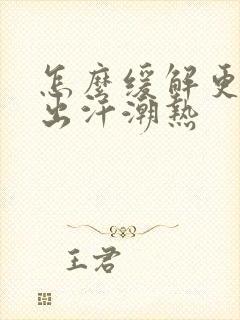 怎麼緩解更
出汗潮熱
王君